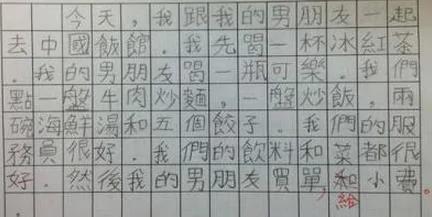 今天，我跟我的男朋友一起
去中國飯館。我先喝一杯冰紅茶
。我的男朋友喝一瓶可樂。我們
點一盤牛肉炒麵，一盤炒飯，兩
碗海鮮湯和五個餃子。我們的服
務員很好。我們的飲料和菜都很
好。然後我的男朋友買單，和小費。
給